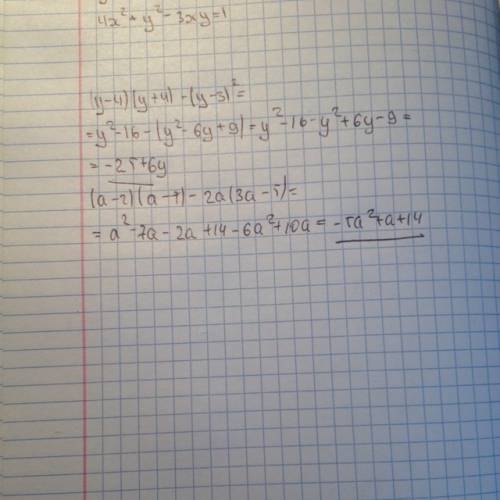 4x²+y²-3xy=1
(y-4)(y+4)-(y-3)²=
=y²-16-(y²-6y+9)=y²-16-y²+6y-9=
=-25+6y
(a-2)(a-7)-2a(3a-5)=
=a²-7a-2a+14-6a²+10a=-5a²+a+14